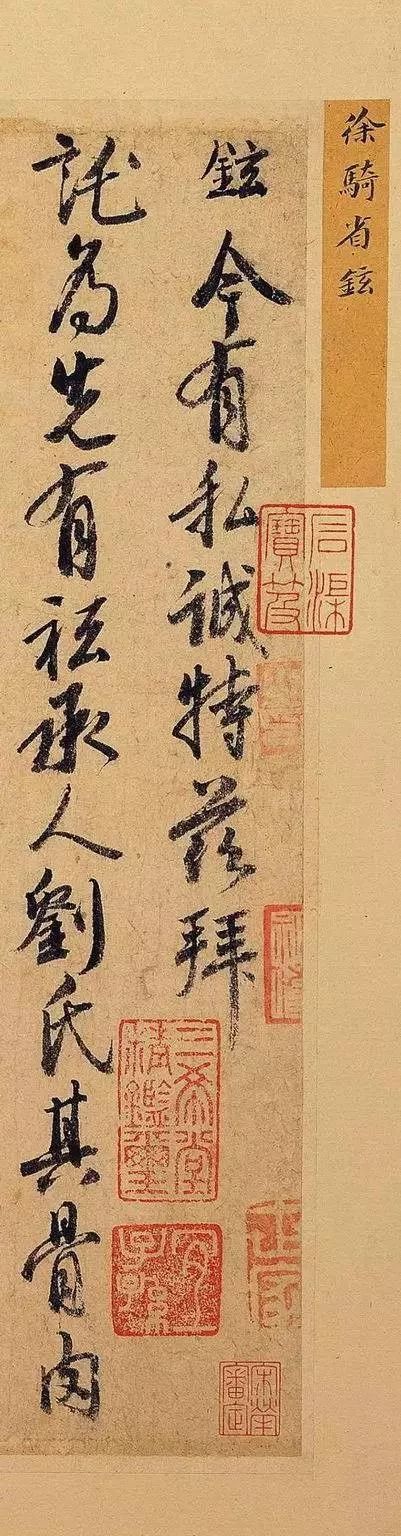 徐騎省鉉
鉉今有私誠特茲拜
託為先有祗承人劉氏其骨肉
石渠寶笈
三希堂精鑑璽
宜子孫
宋犖審定